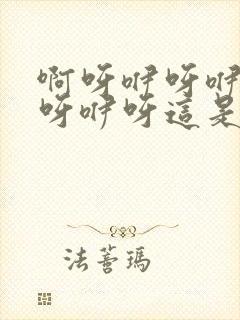 啊呀咿呀咿
呀咿呀這是
法蒼瑪